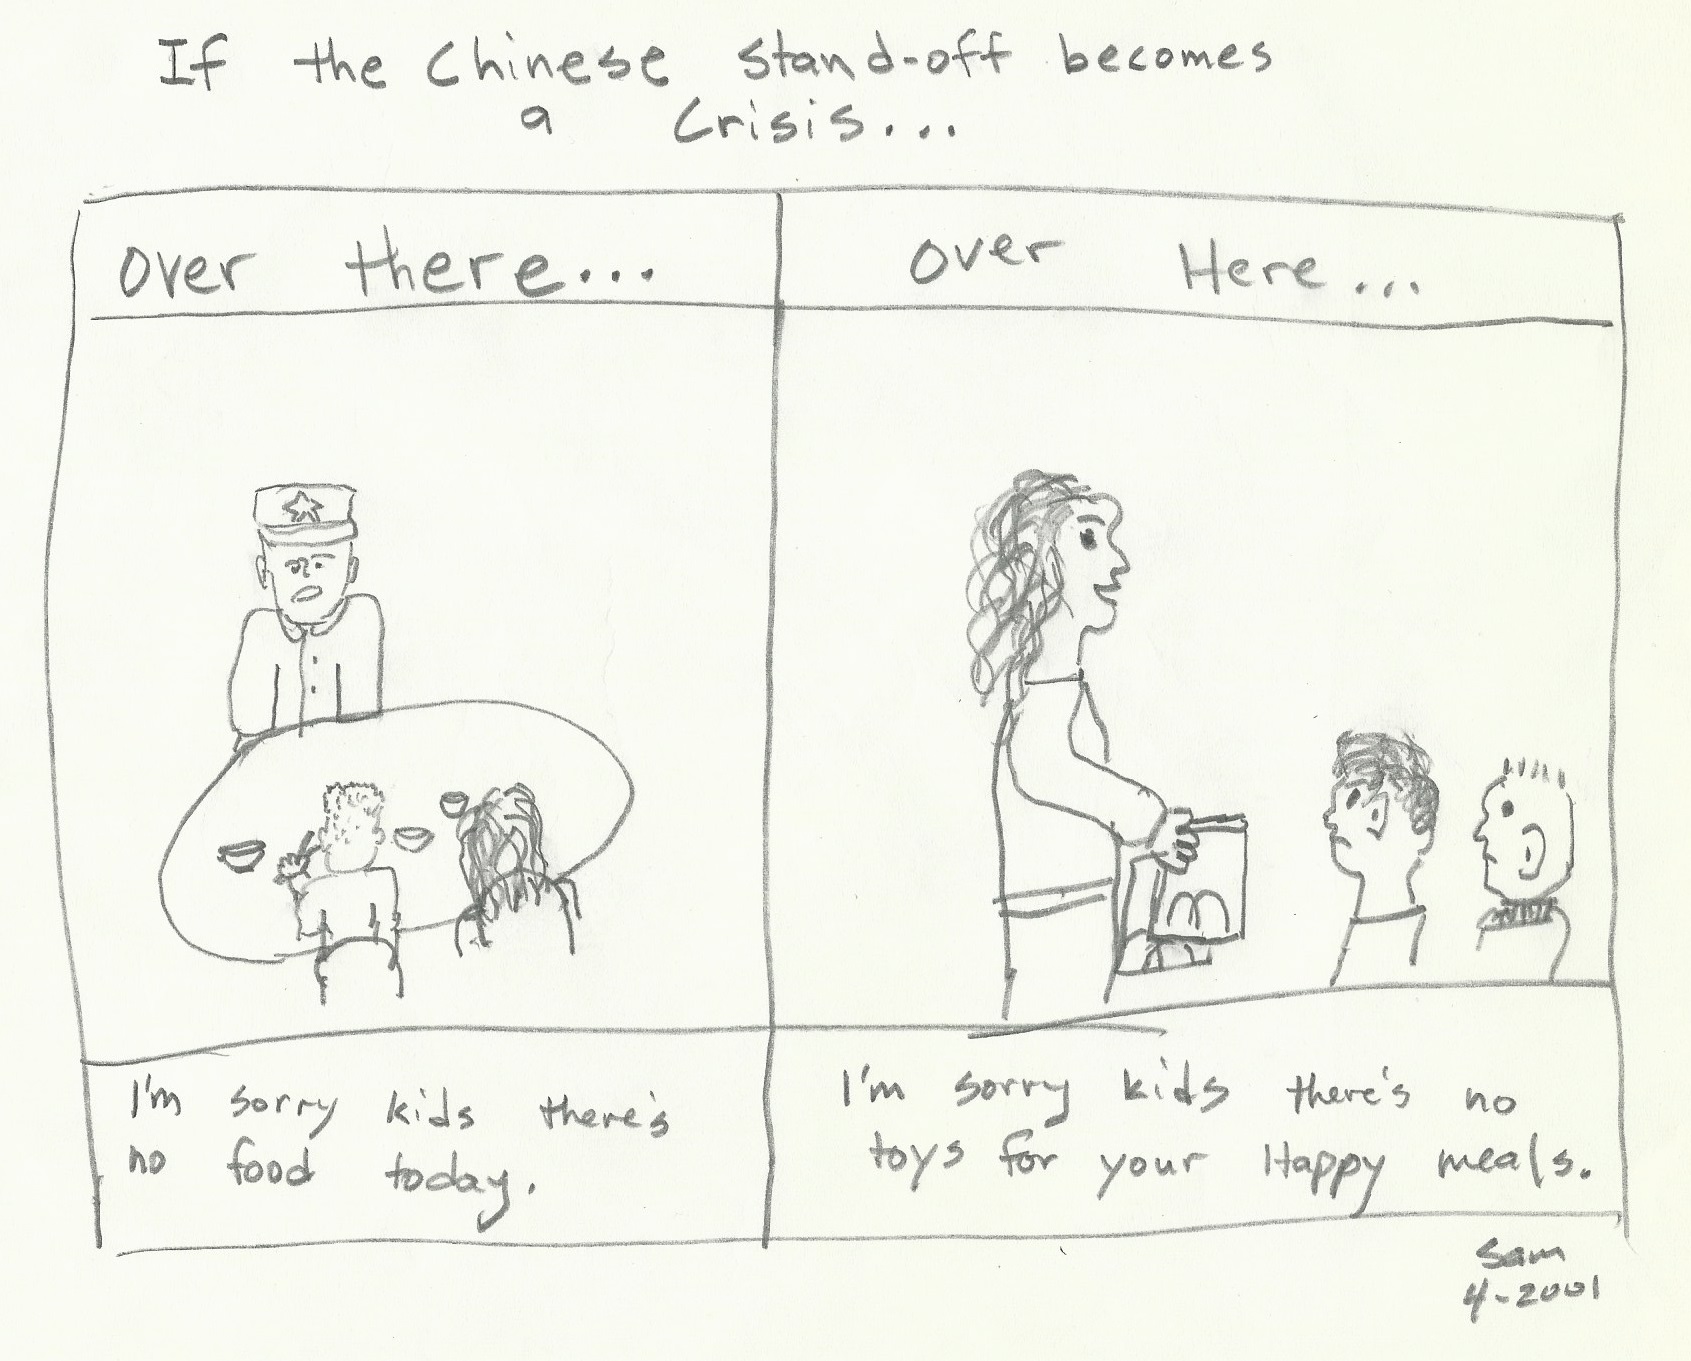 If the Chinese stand-off becomes
a Crisis...
Over there...
I'm sorry kids there's
no food today.
Over Here...
M
I'm sorry kids there's no
toys for your Happy meals.
Sam
4-2001